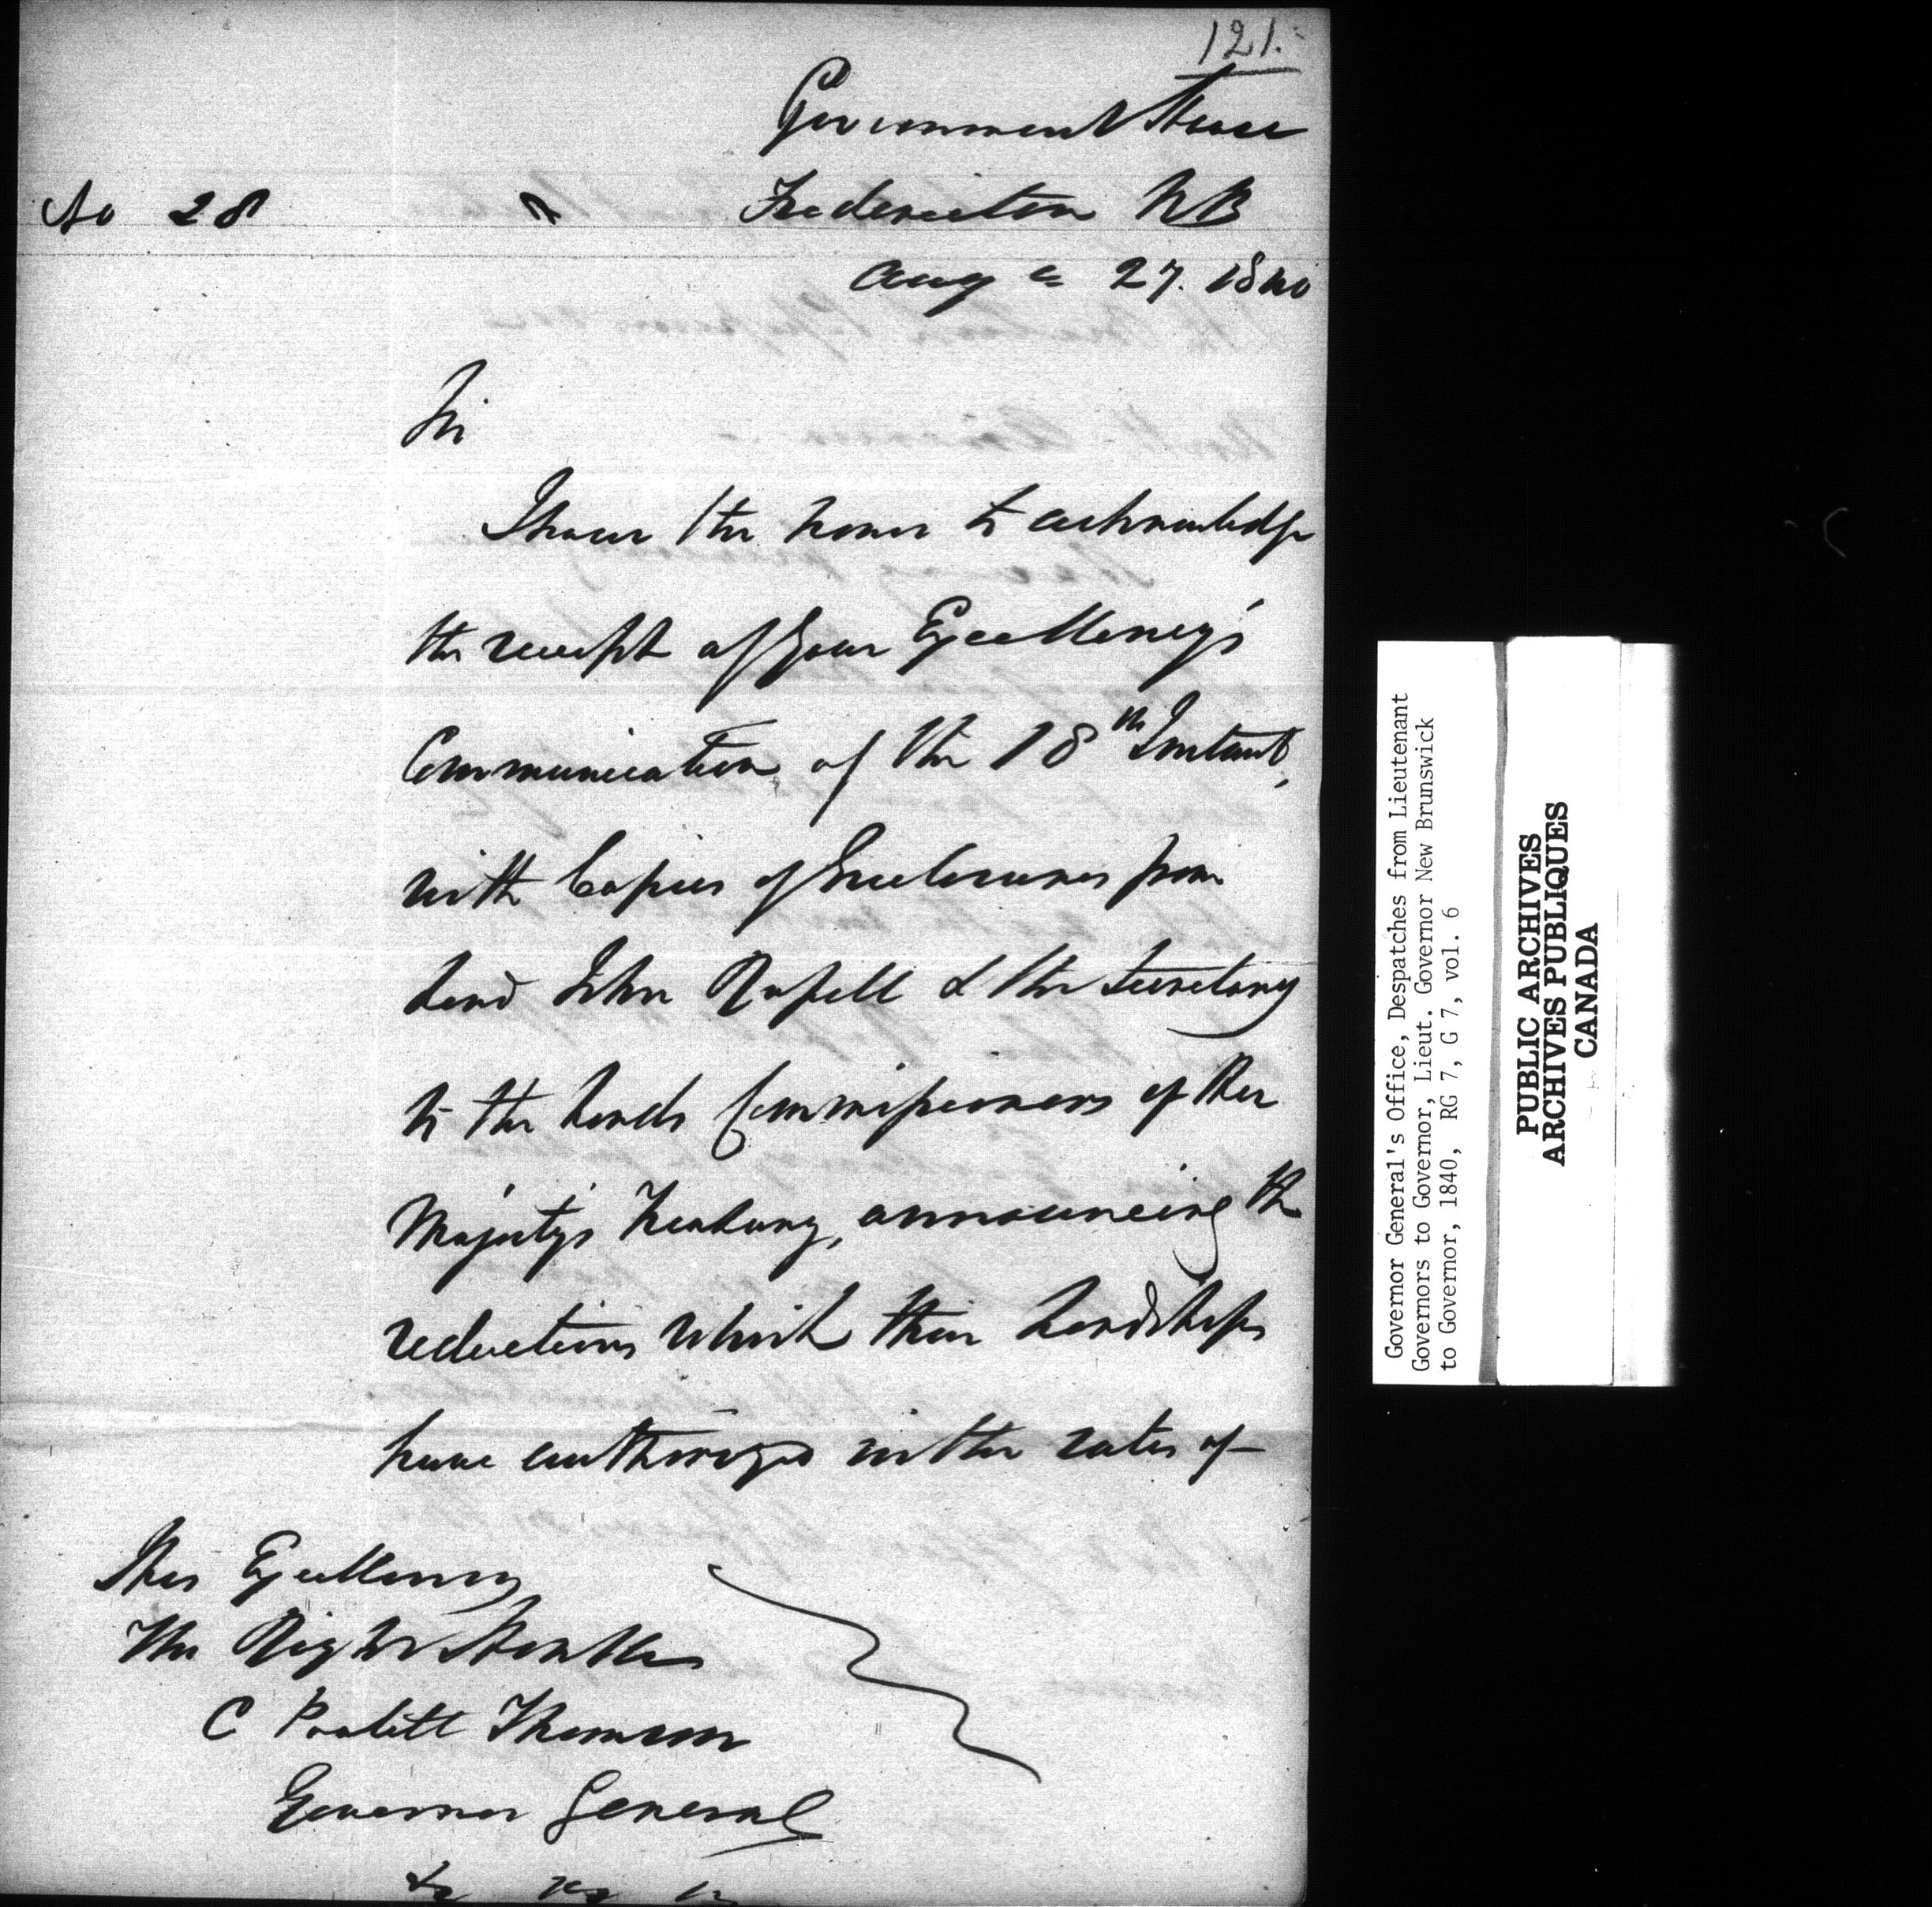 121.
Government House
No 28
Fredericton NB
Aug 27. 1840
Sir
I have the honor to acknowledge
the receipt of Your Excellency's
Communication of the 18th Instant,
with Copies of Enclosures from
Lord John Russell & the Secretary
to the Lords Commissioners of Her
Majesty's Treasury, announcing the
reductions which their Lordships
have authorized in the rates of
His Excellency
The Right Honble
C Poulett Thomson
Governor General
&c &c &c
Governor General's Office, Despatches from Lieutenant
Governors to Governor, Lieut. Governor New Brunswick
to Governor, 1840, RG 7, G 7, vol. 6
PUBLIC ARCHIVES
ARCHIVES PUBLIQUES
CANADA